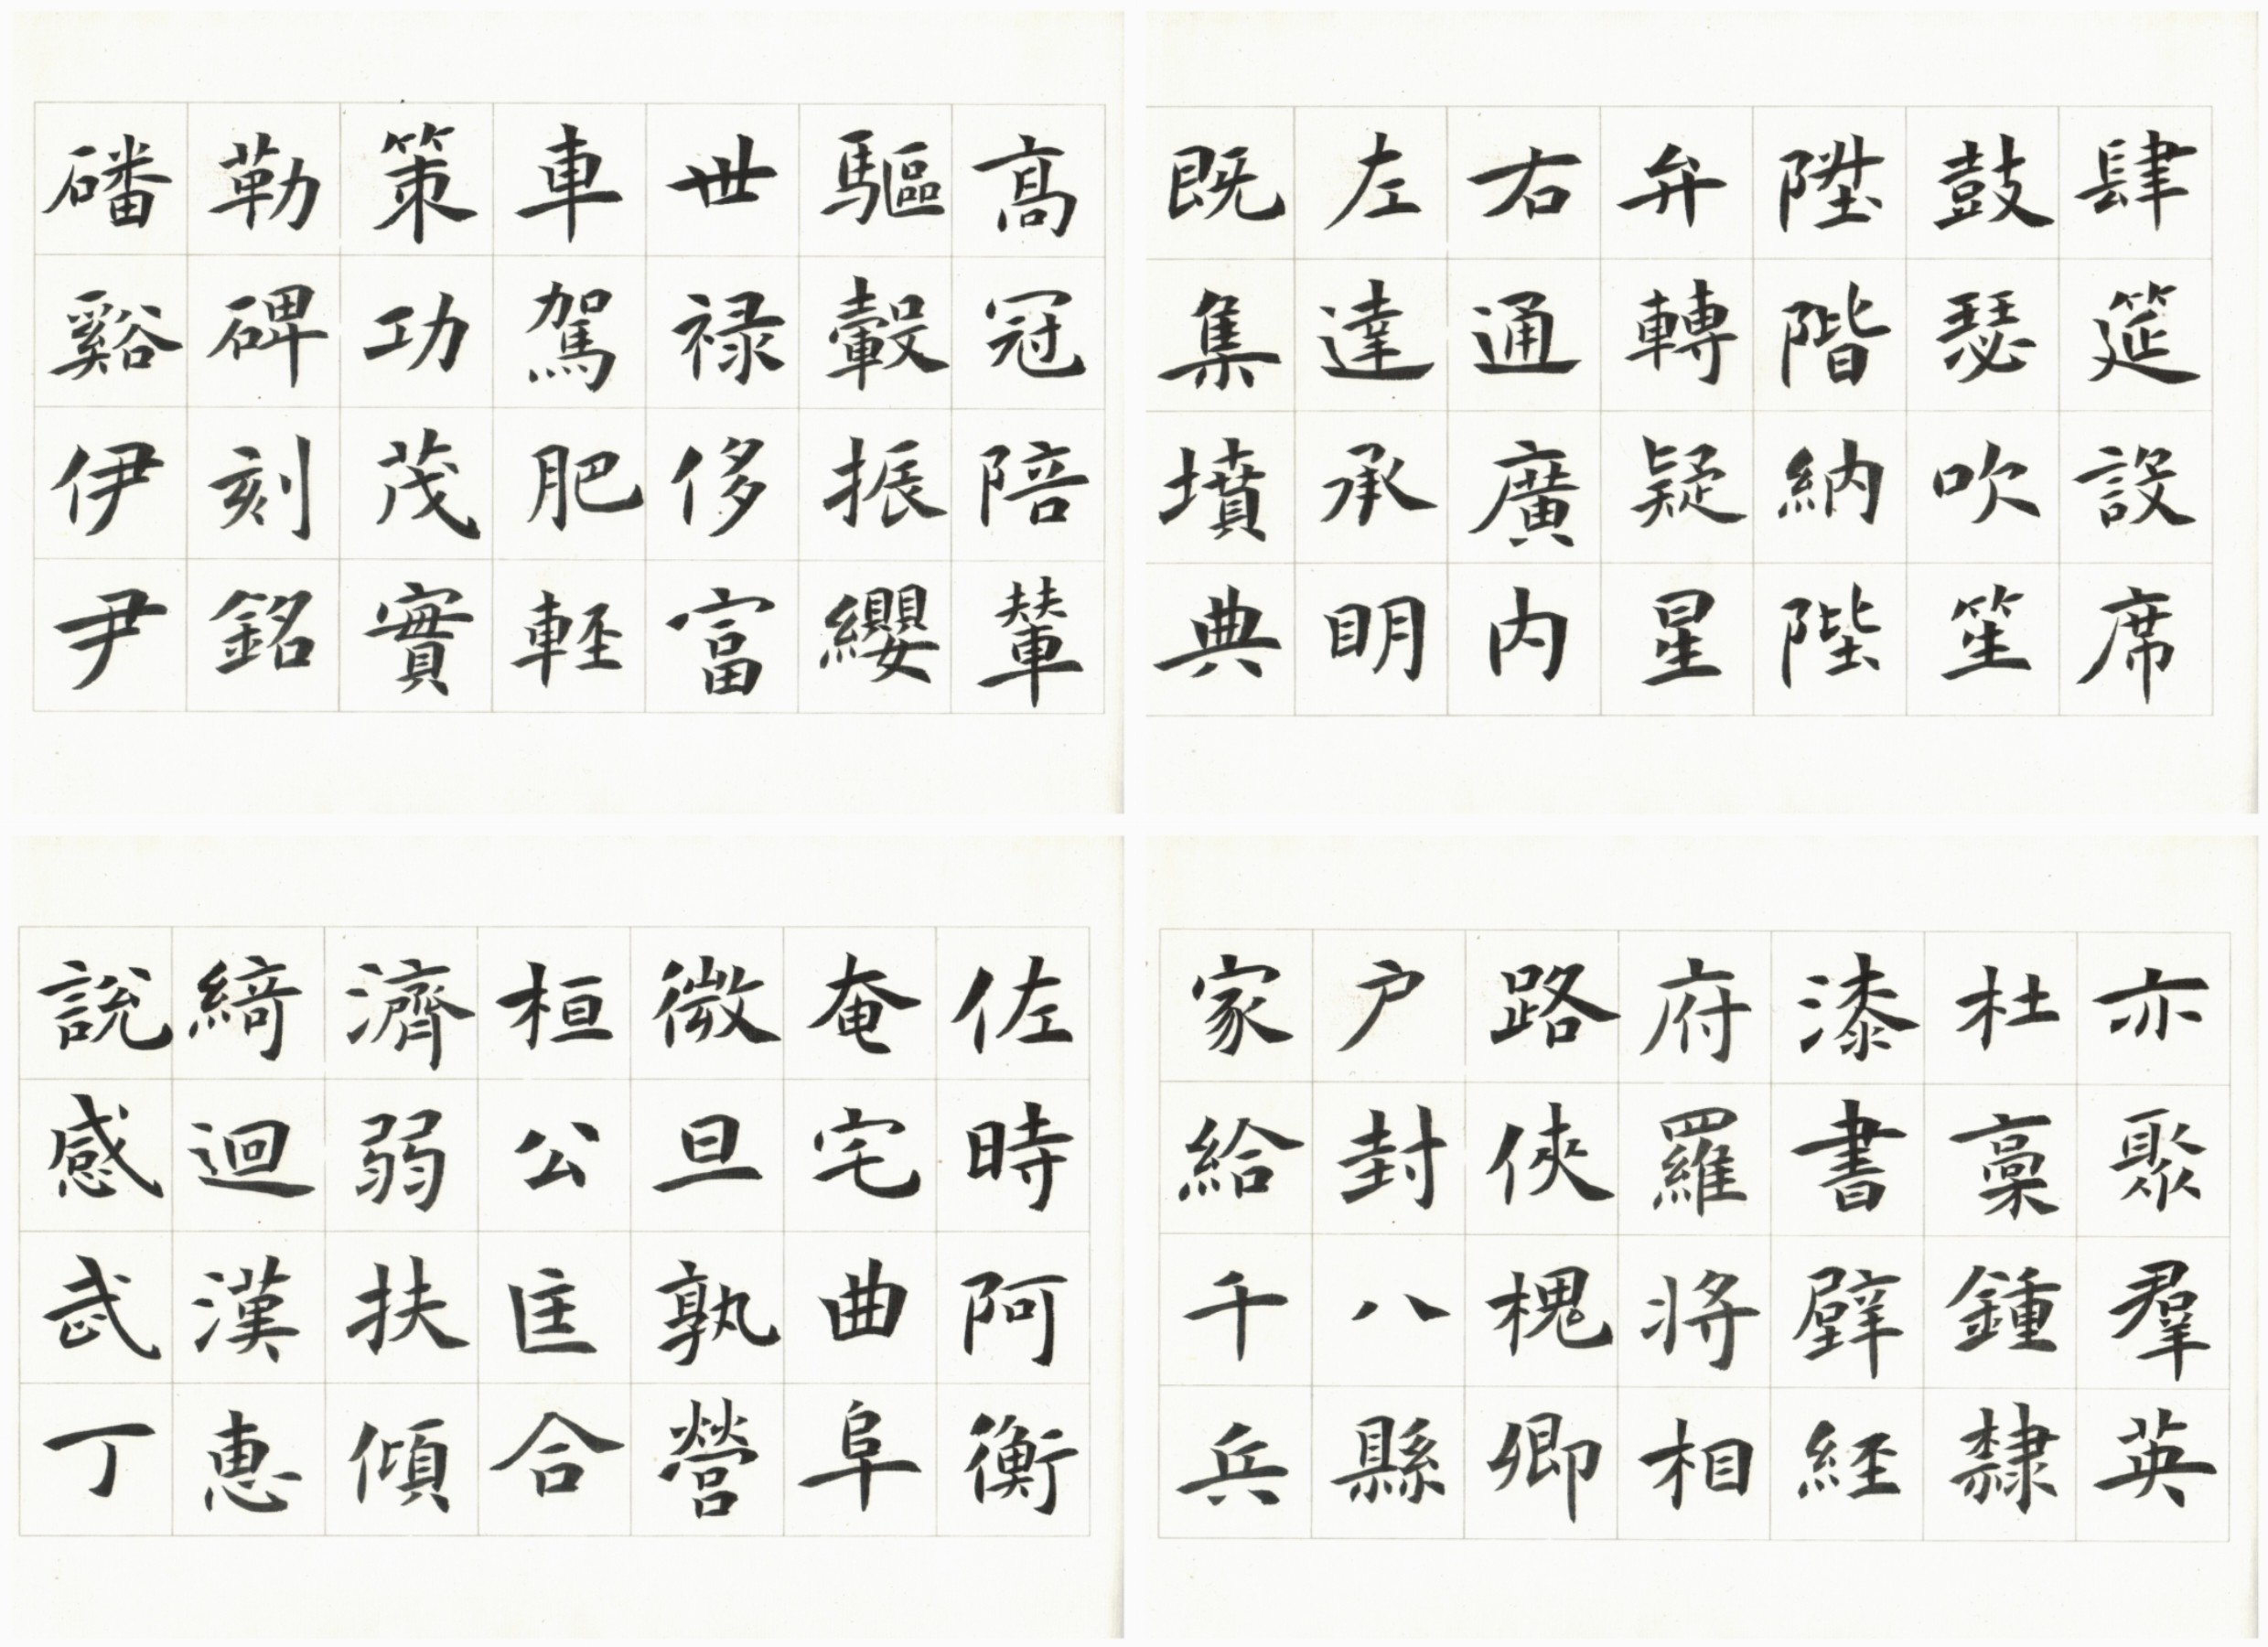 肆筵設席
鼓瑟吹笙
陞階納陛
弁轉疑星
右通廣内
左達承明
既集墳典
亦聚羣英
杜稾鍾隸
漆書壁經
府羅將相
路俠槐卿
户封八縣
家給千兵
髙冠陪輦
驅轂振纓
世禄侈富
車駕肥輕
策功茂實
勒碑刻銘
磻谿伊尹
佐時阿衡
奄宅曲阜
微旦孰營
桓公匡合
濟弱扶傾
綺迴漢惠
說感武丁